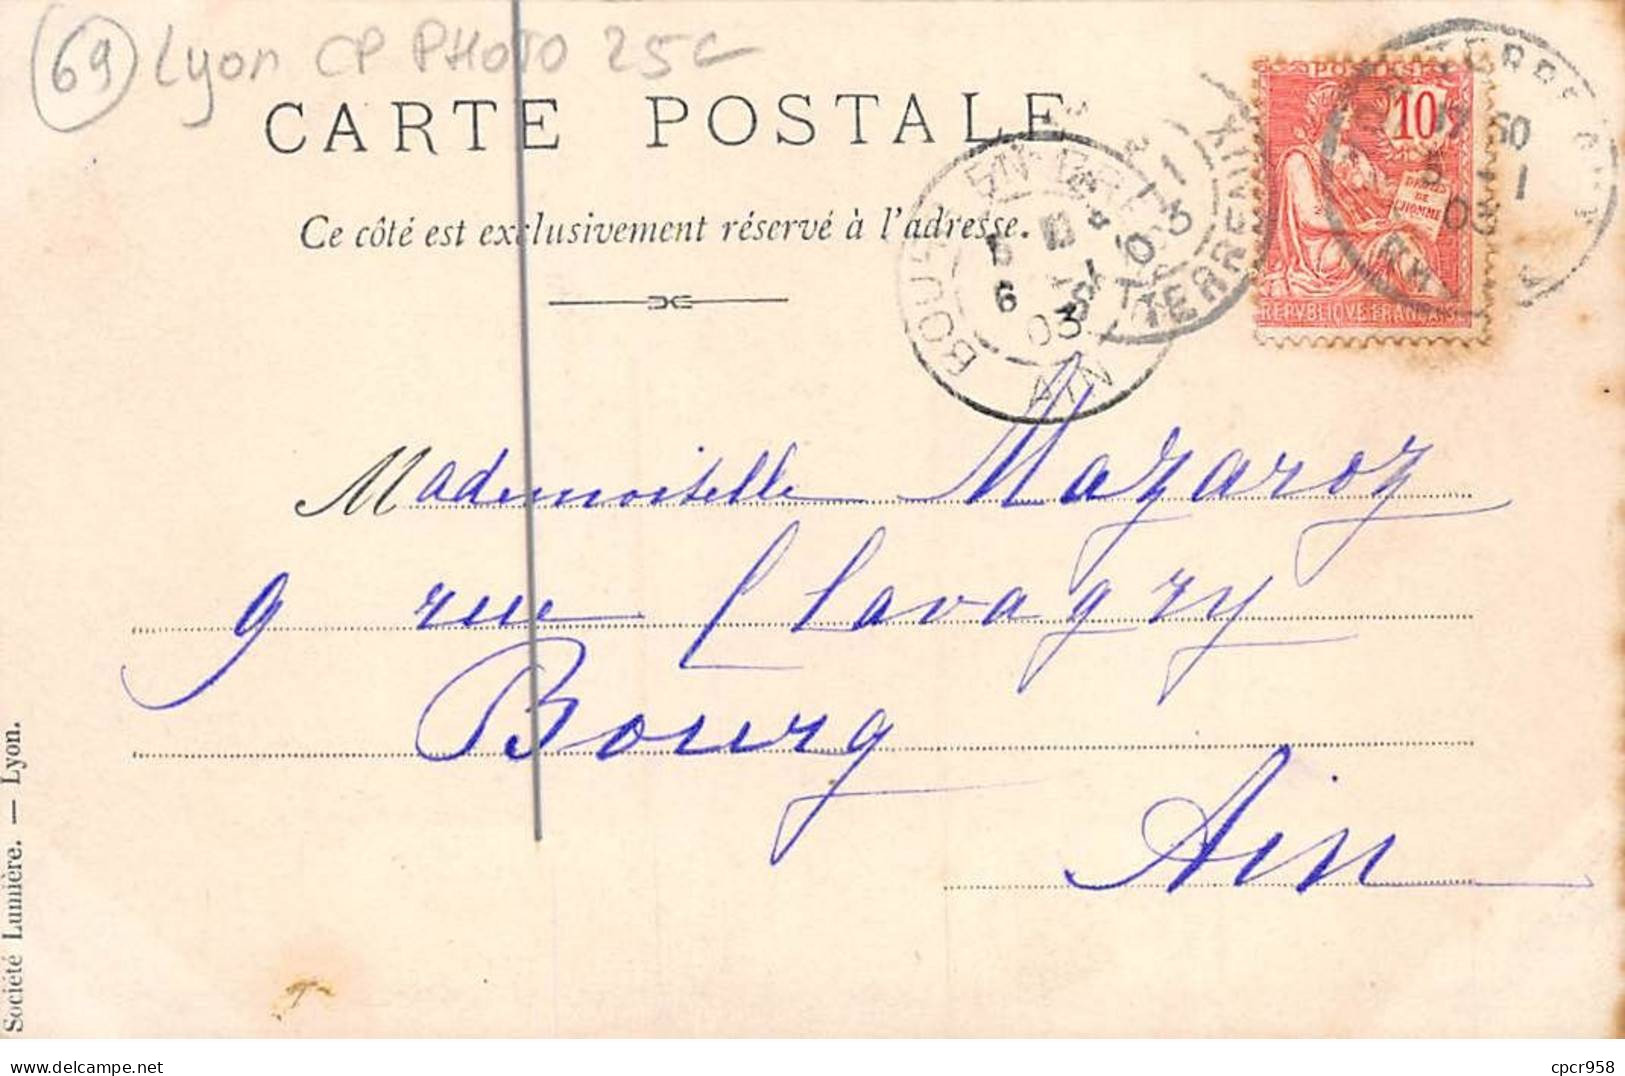 69 Lyon CP PHOTO 25C
CARTE POSTALE
Ce côté est exclusivement réservé à l'adresse.
POSTES
10
DROITS
DE
L'HOMME
REPVBLIQVE FRANÇAISE
17 50
5 1
03
BOURG
6
03
AIN
TERRENOIX
Mademoiselle Mazaroz
9 rue Clavagry
Bourg
Ain
Société Lumière. — Lyon.
delcampe.net
cpcr958